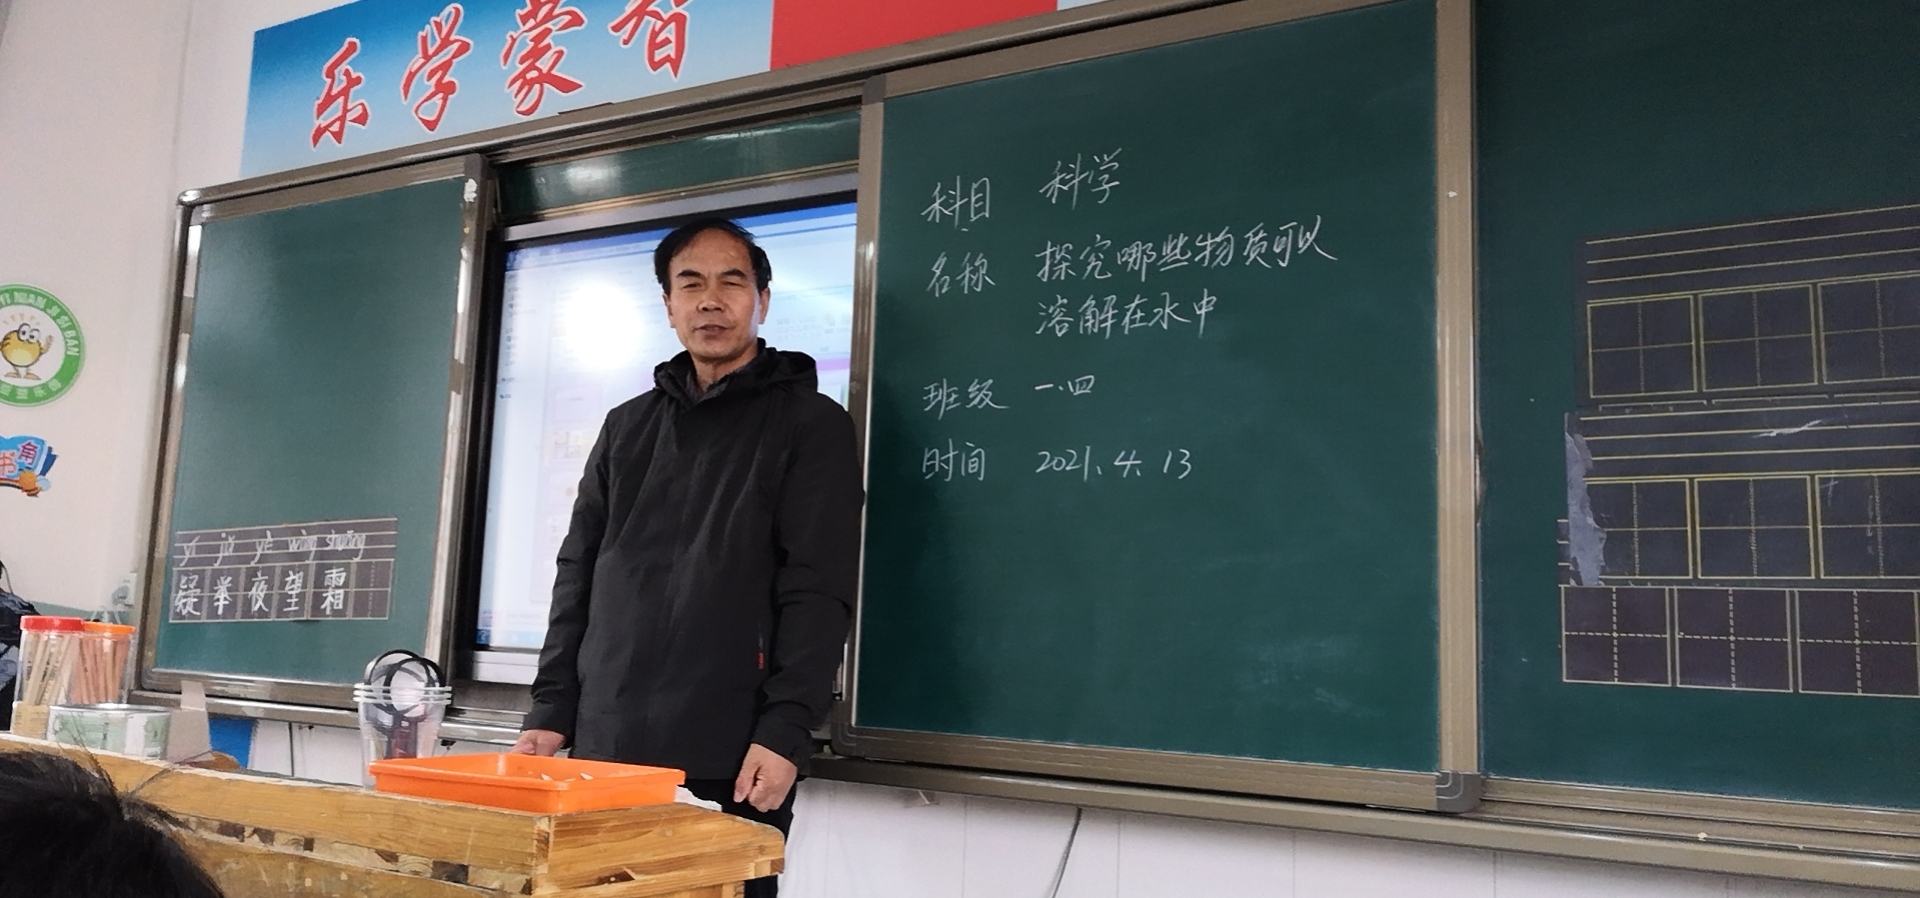 乐学蒙智
科目 科学
名称 探究哪些物质可以
溶解在水中
班级 一.四
时间 2021.4.13
yí jǔ yè wàng shuāng
疑举夜望霜
书角